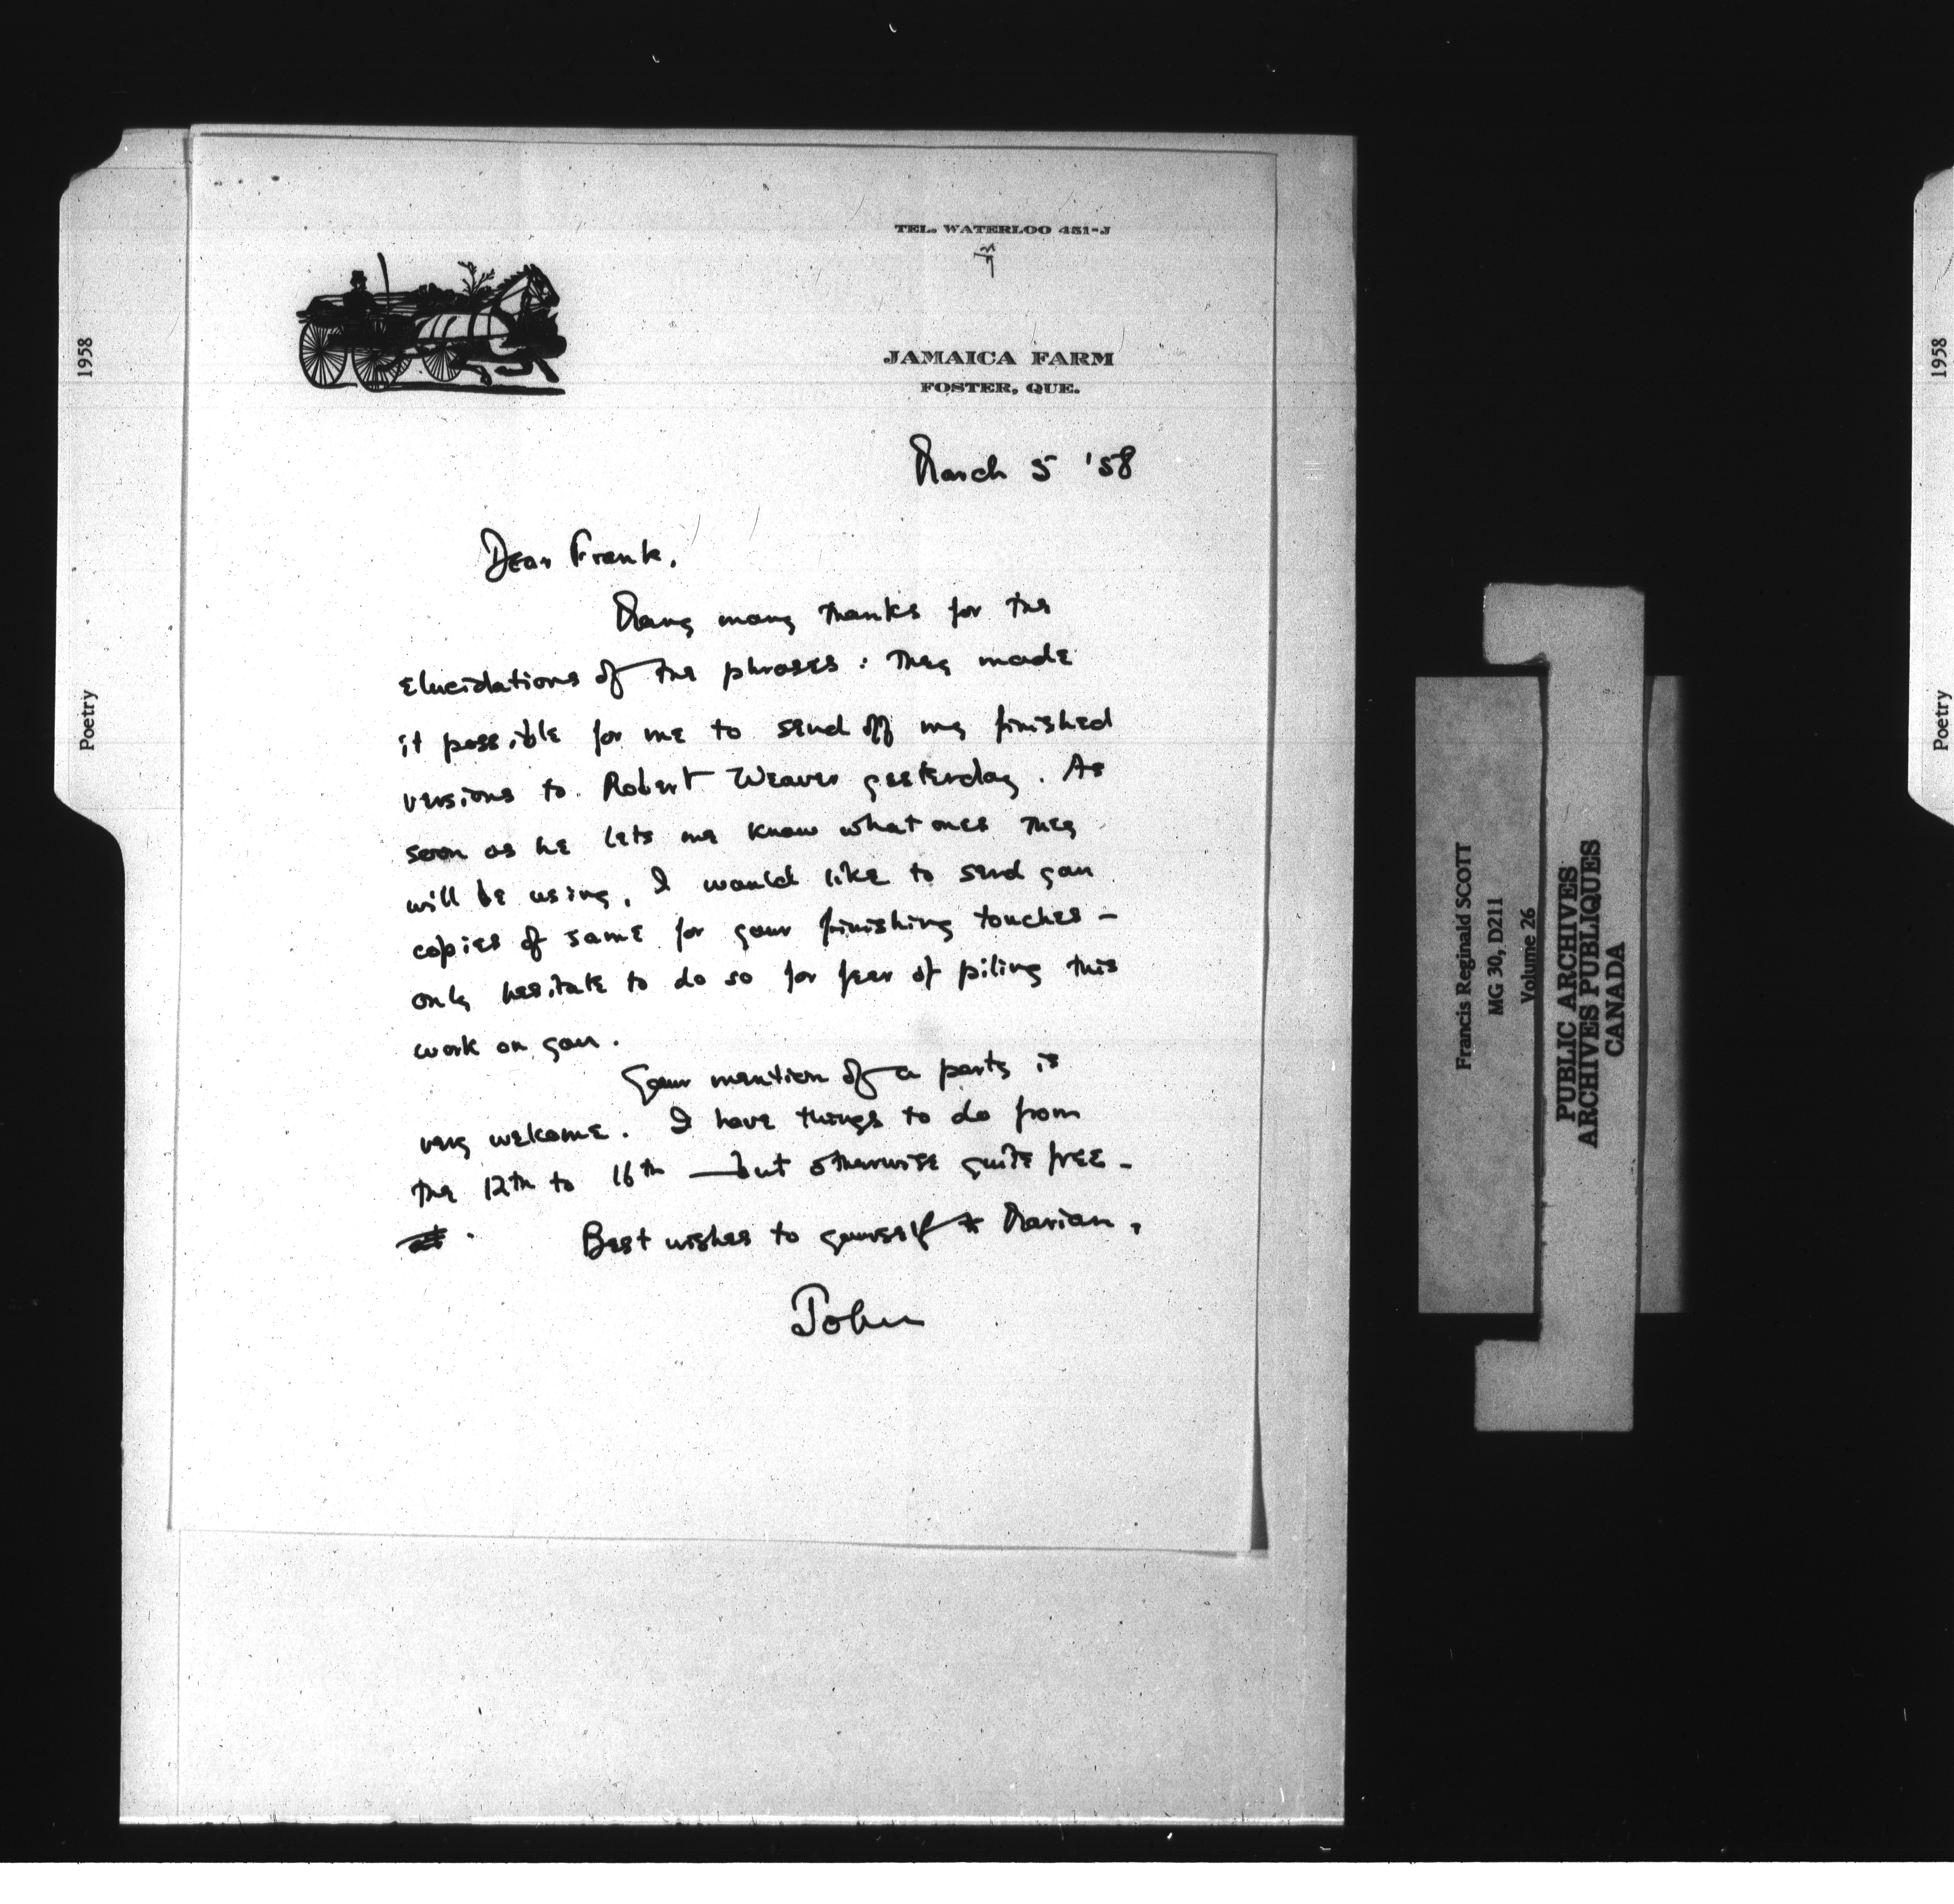 TEL. WATERLOO 451-J
JAMAICA FARM
FOSTER, QUE.
March 5 '58
Dear Frank,
Many many thanks for the
elucidations of the phrases : they made
it possible for me to send off my finished
versions to Robert Weaver yesterday. As
soon as he lets me know what ones they
will be using, I would like to send you
copies of same for your finishing touches –
only hesitate to do so for fear of piling this
work on you.
Your mention of a party is
very welcome. I have things to do from
the 12th to 16th — but otherwise quite free –
Best wishes to yourself & Marian,
John
1958
Poetry
Francis Reginald SCOTT
MG 30, D211
Volume 26
PUBLIC ARCHIVES
ARCHIVES PUBLIQUES
CANADA
1958
Poetry